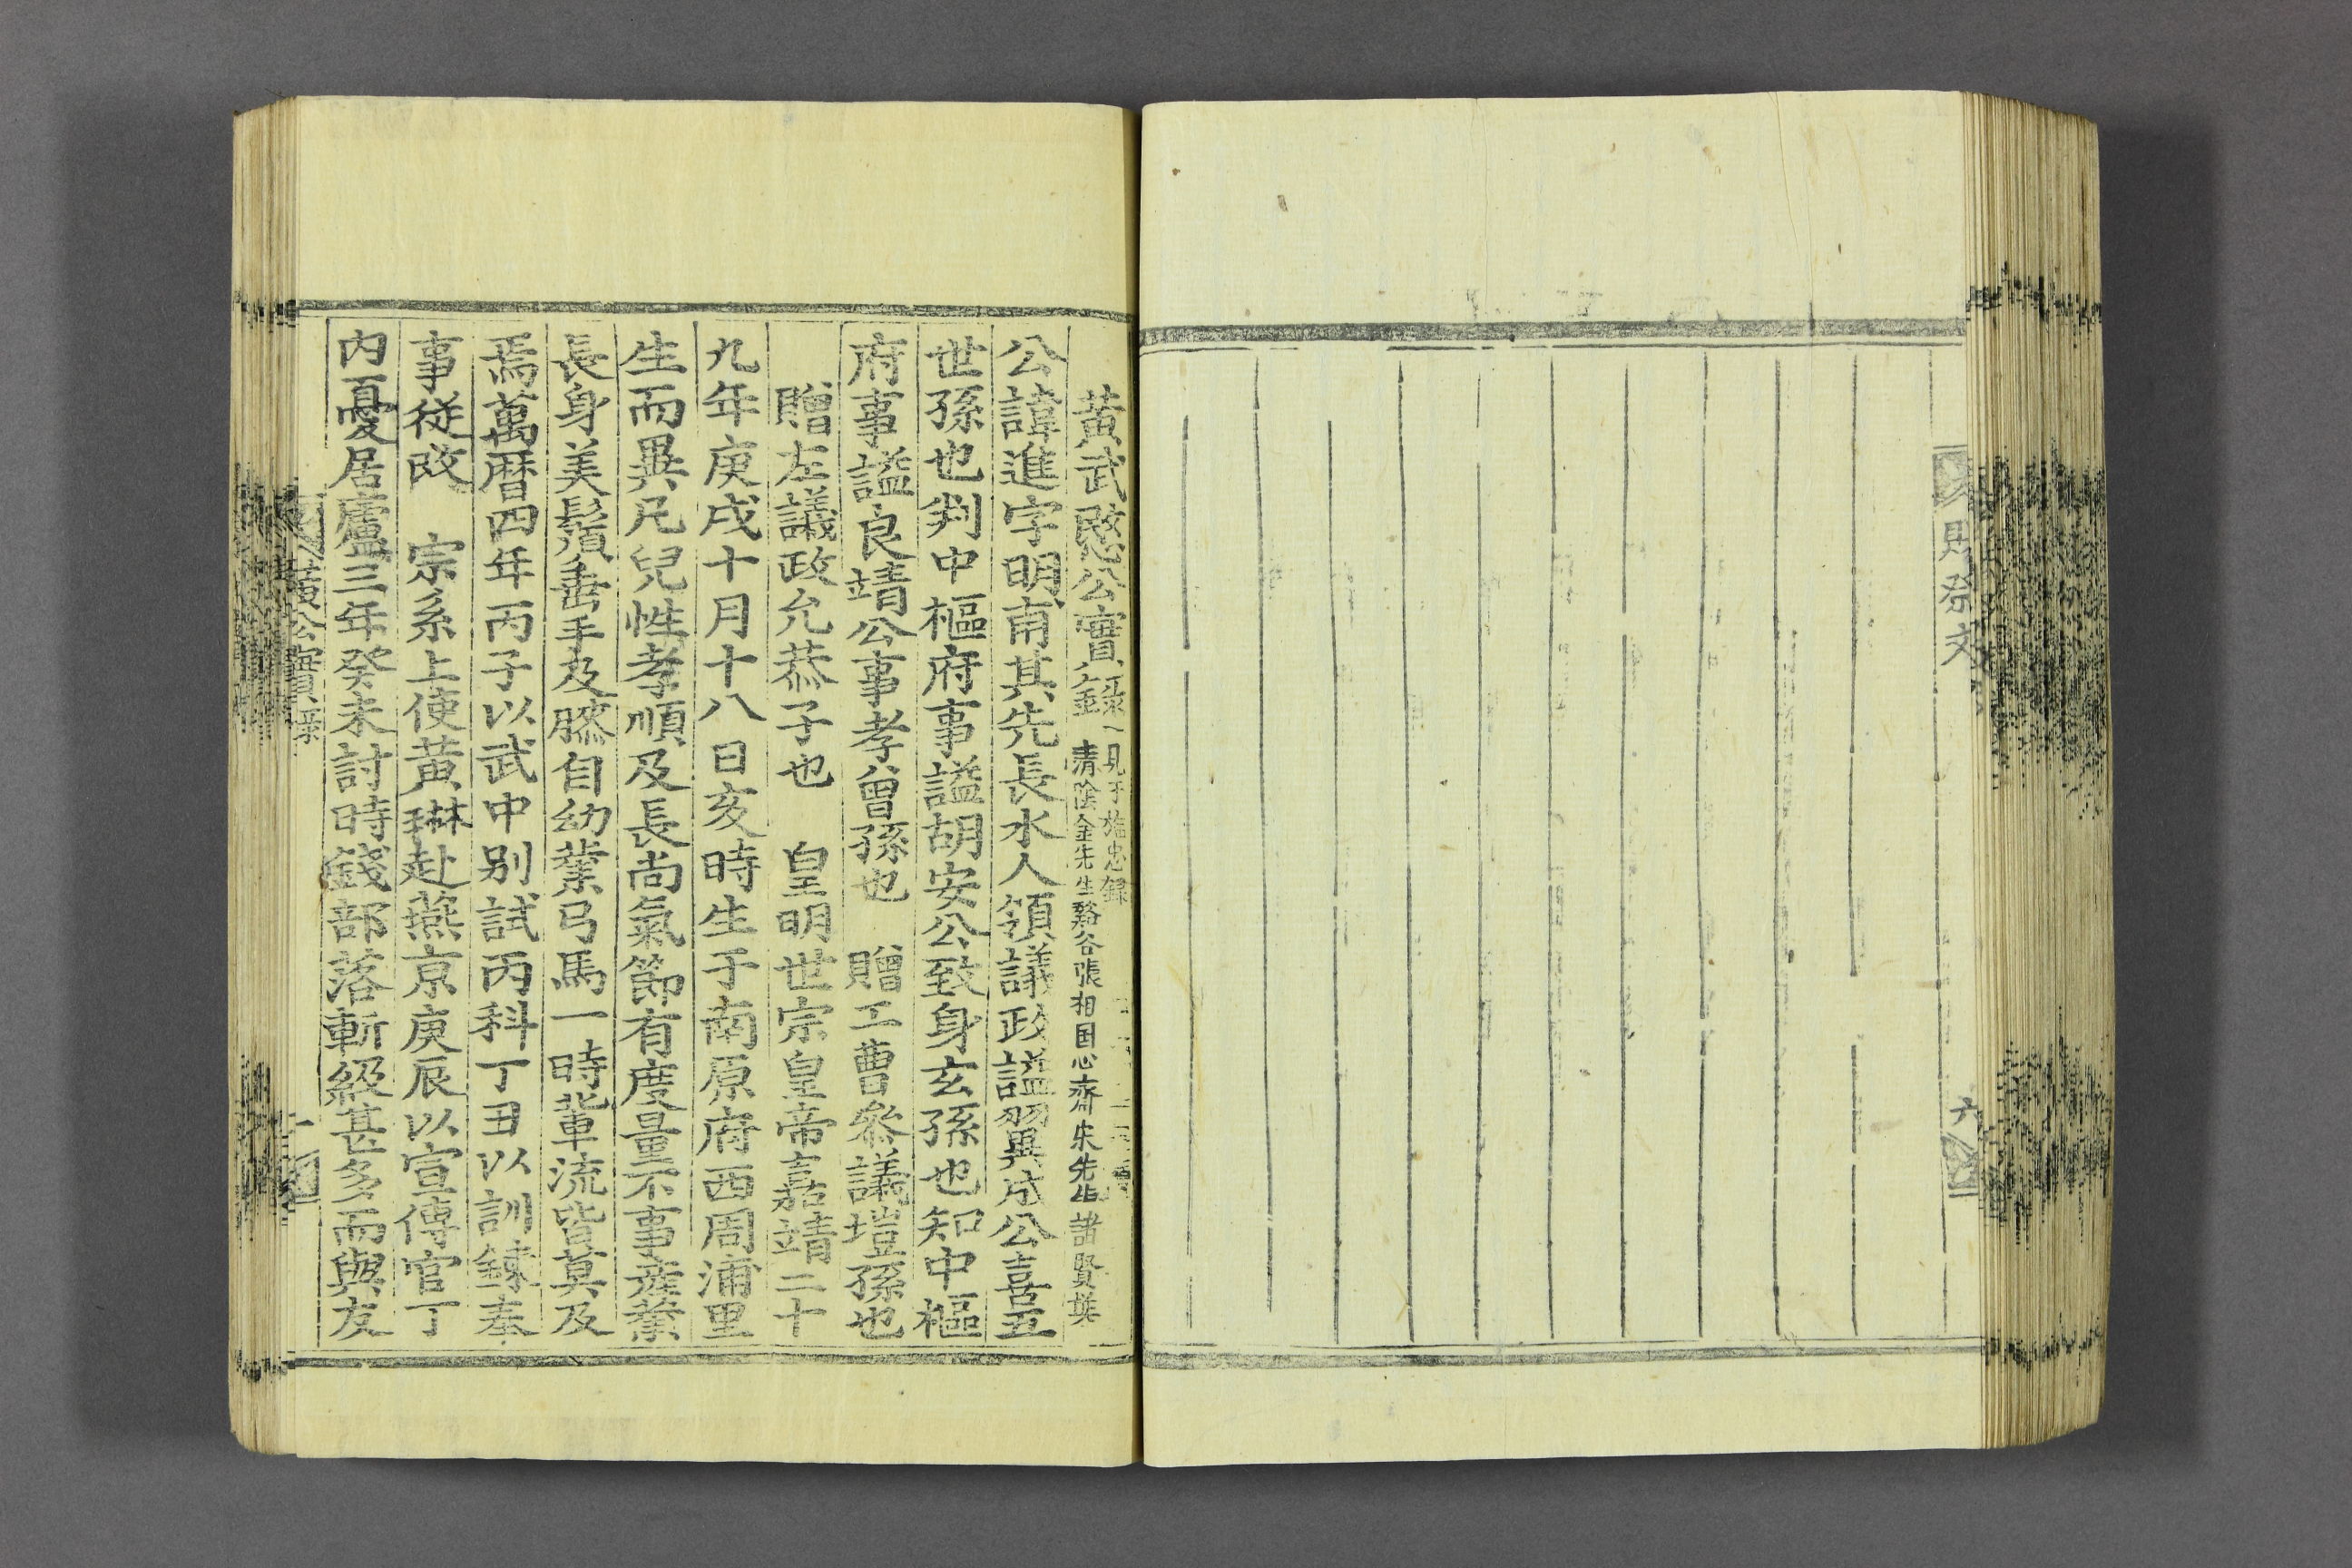 祭文
六
黃武愍公實錄
見于旌忠錄
清陰金先生谿谷張相国心齋朱先生諸賢撰
公諱進字明甫其先長水人領議政諡翼成公喜五
世孫也判中樞府事諡胡安公致身玄孫也知中樞
府事諡良靖公事孝曾孫也 贈工曹參議塏孫也
贈左議政允恭子也 皇明世宗皇帝嘉靖二十
九年庚戌十月十八日亥時生于南原府西周浦里
生而異凡兒性孝順及長尚氣節有度量不事産業
長身美鬚垂手及膝自幼業弓馬一時輩流皆莫及
焉萬曆四年丙子以武中别試丙科丁丑以訓鍊奉
事從改 宗系上使黃琳赴燕京庚辰以宣傳官丁
内憂居廬三年癸未討時錢部落斬級甚多而與友
黃公實錄
一